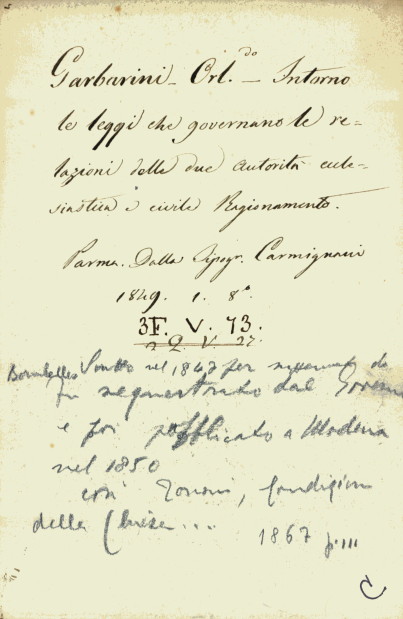 Garbarini – Orl.do – Intorno
le leggi che governano le re=
lazioni delle due autorità eccle=
siastica e civile Ragionamento.
Parma. Dalla Tipogr. Carmignani
1849. 1. 8º
3F. V. 73.
2 Q. V. 27.
nel 1847 per da
fu sequestrato dal
e poi pubblicato a Modena
nel 1850
così Tononi, Condizioni
della Chiesa...
1867 p. 111
C